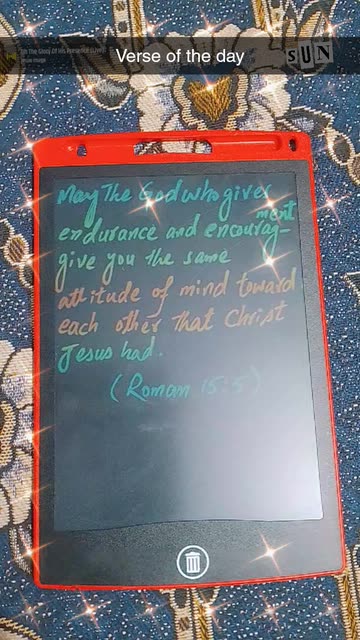 Verse of the day
SUN
May The God who gives
endurance and encourag-
ment
give you the same
attitude of mind toward
each other that Christ
Jesus had.
(Roman 15:5)